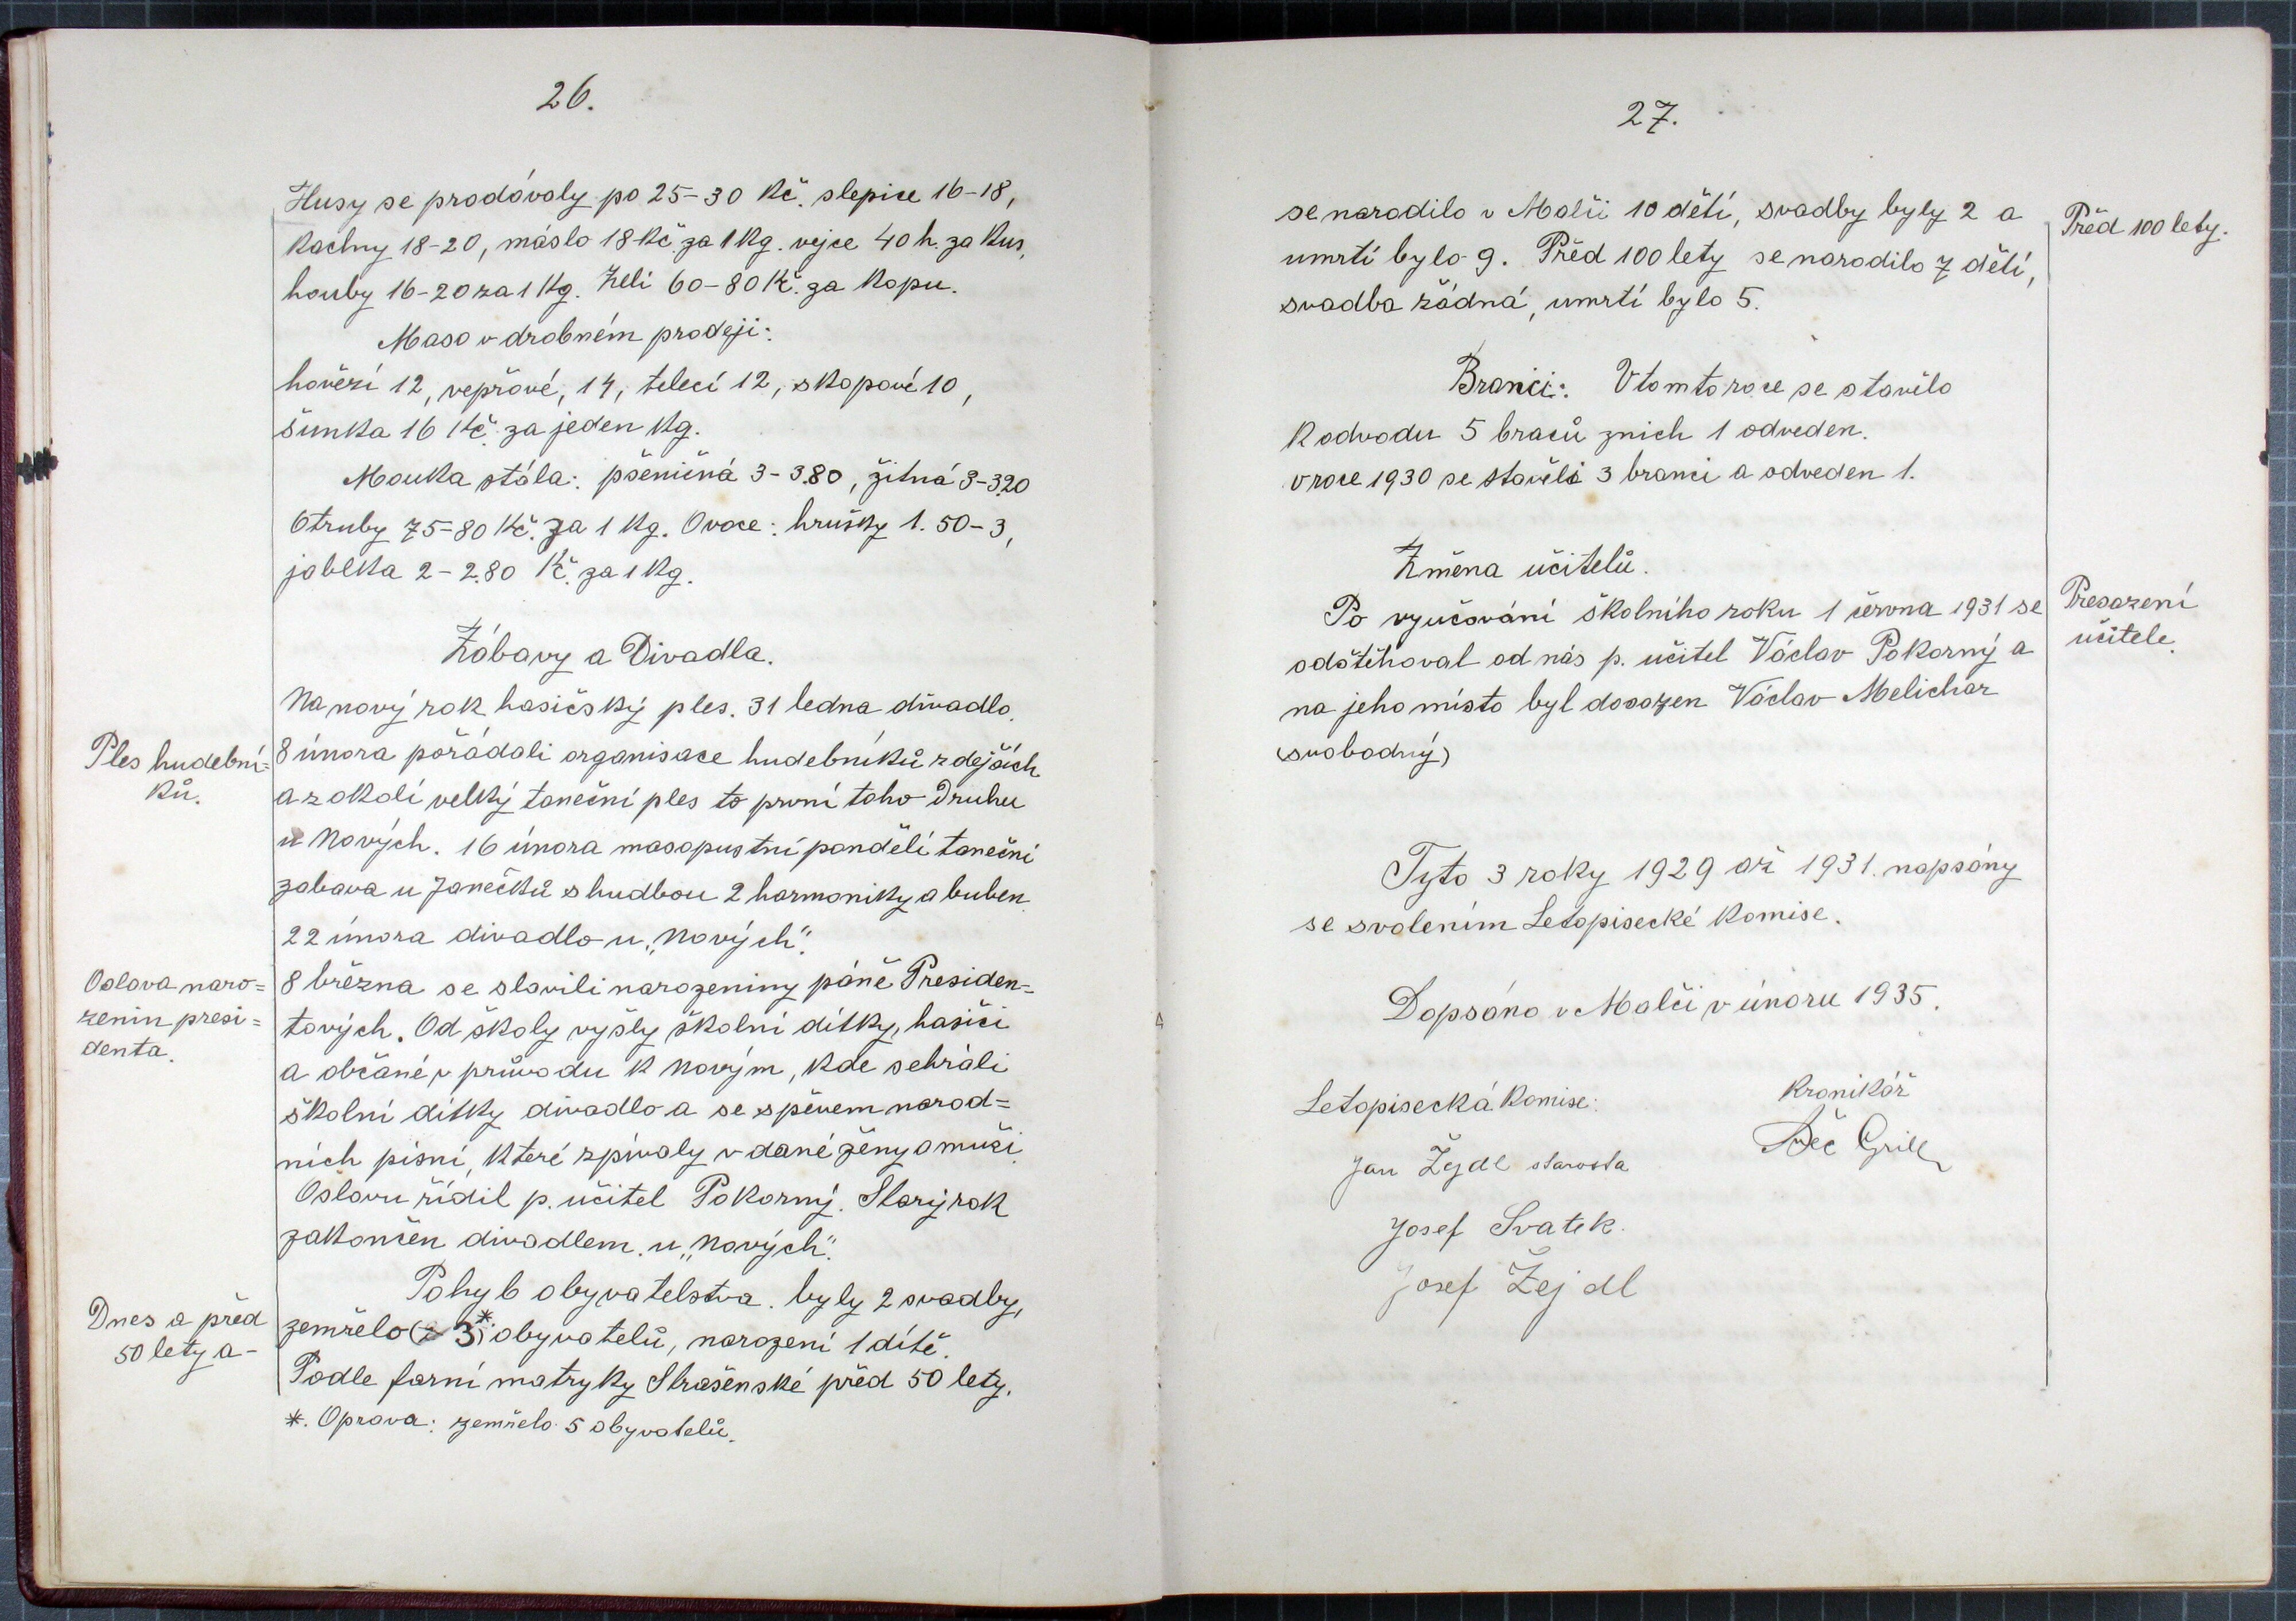 26.
Husy se prodávaly po 25-30 Kč. slepice 16-18,
Kachny 18-20, máslo 18 Kč za 1 Kg. vejce 40 h. za Kus,
houby 16-20 za 1 Kg. Zelí 60-80 Kč. za Kopu.
Maso v drobném prodeji:
hovězí 12, vepřové, 14, telecí 12, skopové 10,
šunka 16 Kč. za jeden Kg.
Mouka stála: pšeničná 3-3.80, žitná 3-3.20
Otruby 75-80 Kč. za 1 Kg. Ovoce: hrušky 1.50-3,
jablka 2-2.80 Kč. za 1 Kg.
Zábavy a Divadla.
Na nový rok hasičský ples. 31 ledna divadlo.
Ples hudební=
ků.
8 února pořádali organisace hudebníků zdejších
a z okolí velký taneční ples to první toho Druhu
u Nových. 16 února masopustní pondělí taneční
zabava u Janečků s hudbou 2 harmoniky a buben.
22 února divadlo u „Nových".
Oslava naro=
zenin presi=
denta.
8 března se slavili narozeniny páně Presiden=
tových. Od školy vyšly školní dítky, hasiči
a občané v průvodu k Novým, kde sehráli
školní dítky divadlo a se zpěvem narod=
ních písní, které zpívaly vdané ženy a muži.
Oslavu řídil p. učitel Pokorný. Starý rok
zakončen divadlem u „Nových".
Pohyb obyvatelstva. byly 2 svadby,
Dnes a před
50 lety a-
zemřelo 3* obyvatelů, narození 1 dítě.
Podle farní matryky Strašenské před 50 lety.
*. Oprava: zemřelo 5 obyvatelů.
27.
se narodilo v Malči 10 dětí, svadby byly 2 a
Před 100 lety.
umrtí bylo 9. Před 100 lety se narodilo 7 dětí,
svadba žádná, umrtí bylo 5.
Branci: V tomto roce se stavilo
K odvodu 5 braců z nich 1 odveden.
v roce 1930 se stavěli 3 branci a odveden 1.
Změna učitelů.
Po vyučování školního roku 1 června 1931 se
Přesazení
učitele.
odstěhoval od nás p. učitel Václav Pokorný a
na jeho místo byl dosazen Václav Melichar
(svobodný)
Tyto 3 roky 1929 až 1931. napsány
se svolením Letopisecké Komise.
Dopsáno v Malči v únoru 1935.
Letopisecká Komise:
Kronikář
Grill
Jan Žejdl starosta
Josef Svatek.
Josef Žejdl